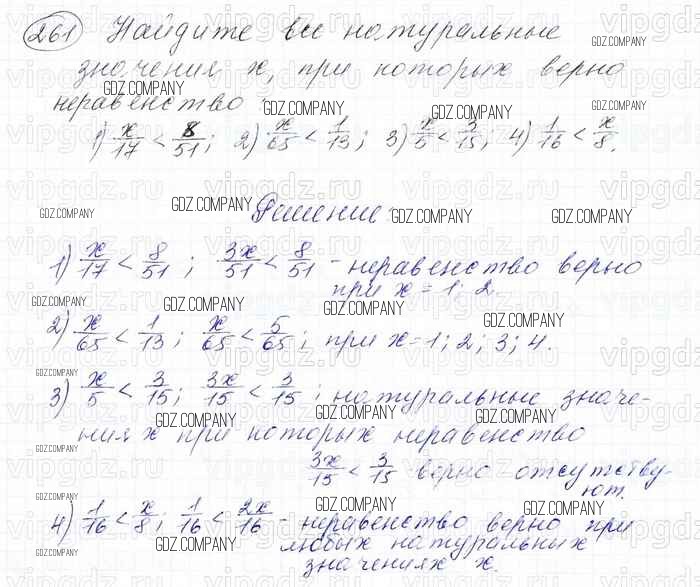 261 Найдите все натуральные
значения x, при которых верно
неравенство:
1) x/17 < 8/51; 2) x/65 < 1/13; 3) x/5 < 3/15; 4) 1/16 < x/8.
Решение:
1) x/17 < 8/51; 3x/51 < 8/51 - неравенство верно
при x = 1; 2.
2) x/65 < 1/13; x/65 < 5/65; при x=1; 2; 3; 4.
3) x/5 < 3/15; 3x/15 < 3/15; натуральные значе-
ния x при которых неравенство
3x/15 < 3/15 верно отсутству-
ют.
4) 1/16 < x/8; 1/16 < 2x/16 - неравенство верно при
любых натуральных
значениях x.